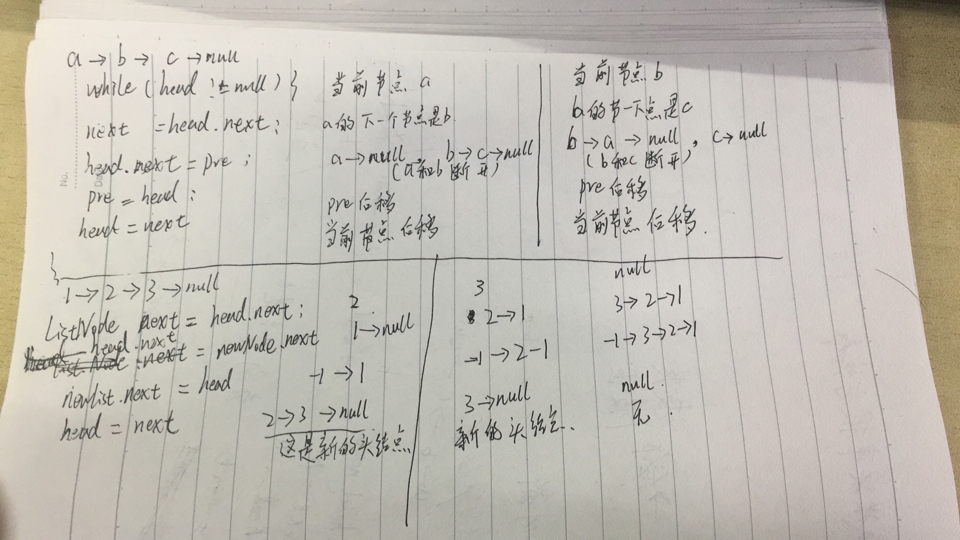 a → b → c → null
while (head != null) {
next = head.next;
head.next = pre;
pre = head;
head = next
}
当前节点 a
a的下一个节点是b
a → null , b → c → null
(a和b断开)
pre后移
当前节点后移
当前节点 b
b的节一下点是c
b → a → null , c → null
(b和c断开)
pre后移
当前节点后移.
1 → 2 → 3 → null
ListNode next = head.next;
head.next = newNode.next
newlist.next = head
head = next
2
1 → null
-1 → 1
2 → 3 → null
这是新的头结点
3
2 → 1
-1 → 2 - 1
3 → null
新的头结点.
null
3 → 2 → 1
-1 → 3 → 2 → 1
null.
无.
No.